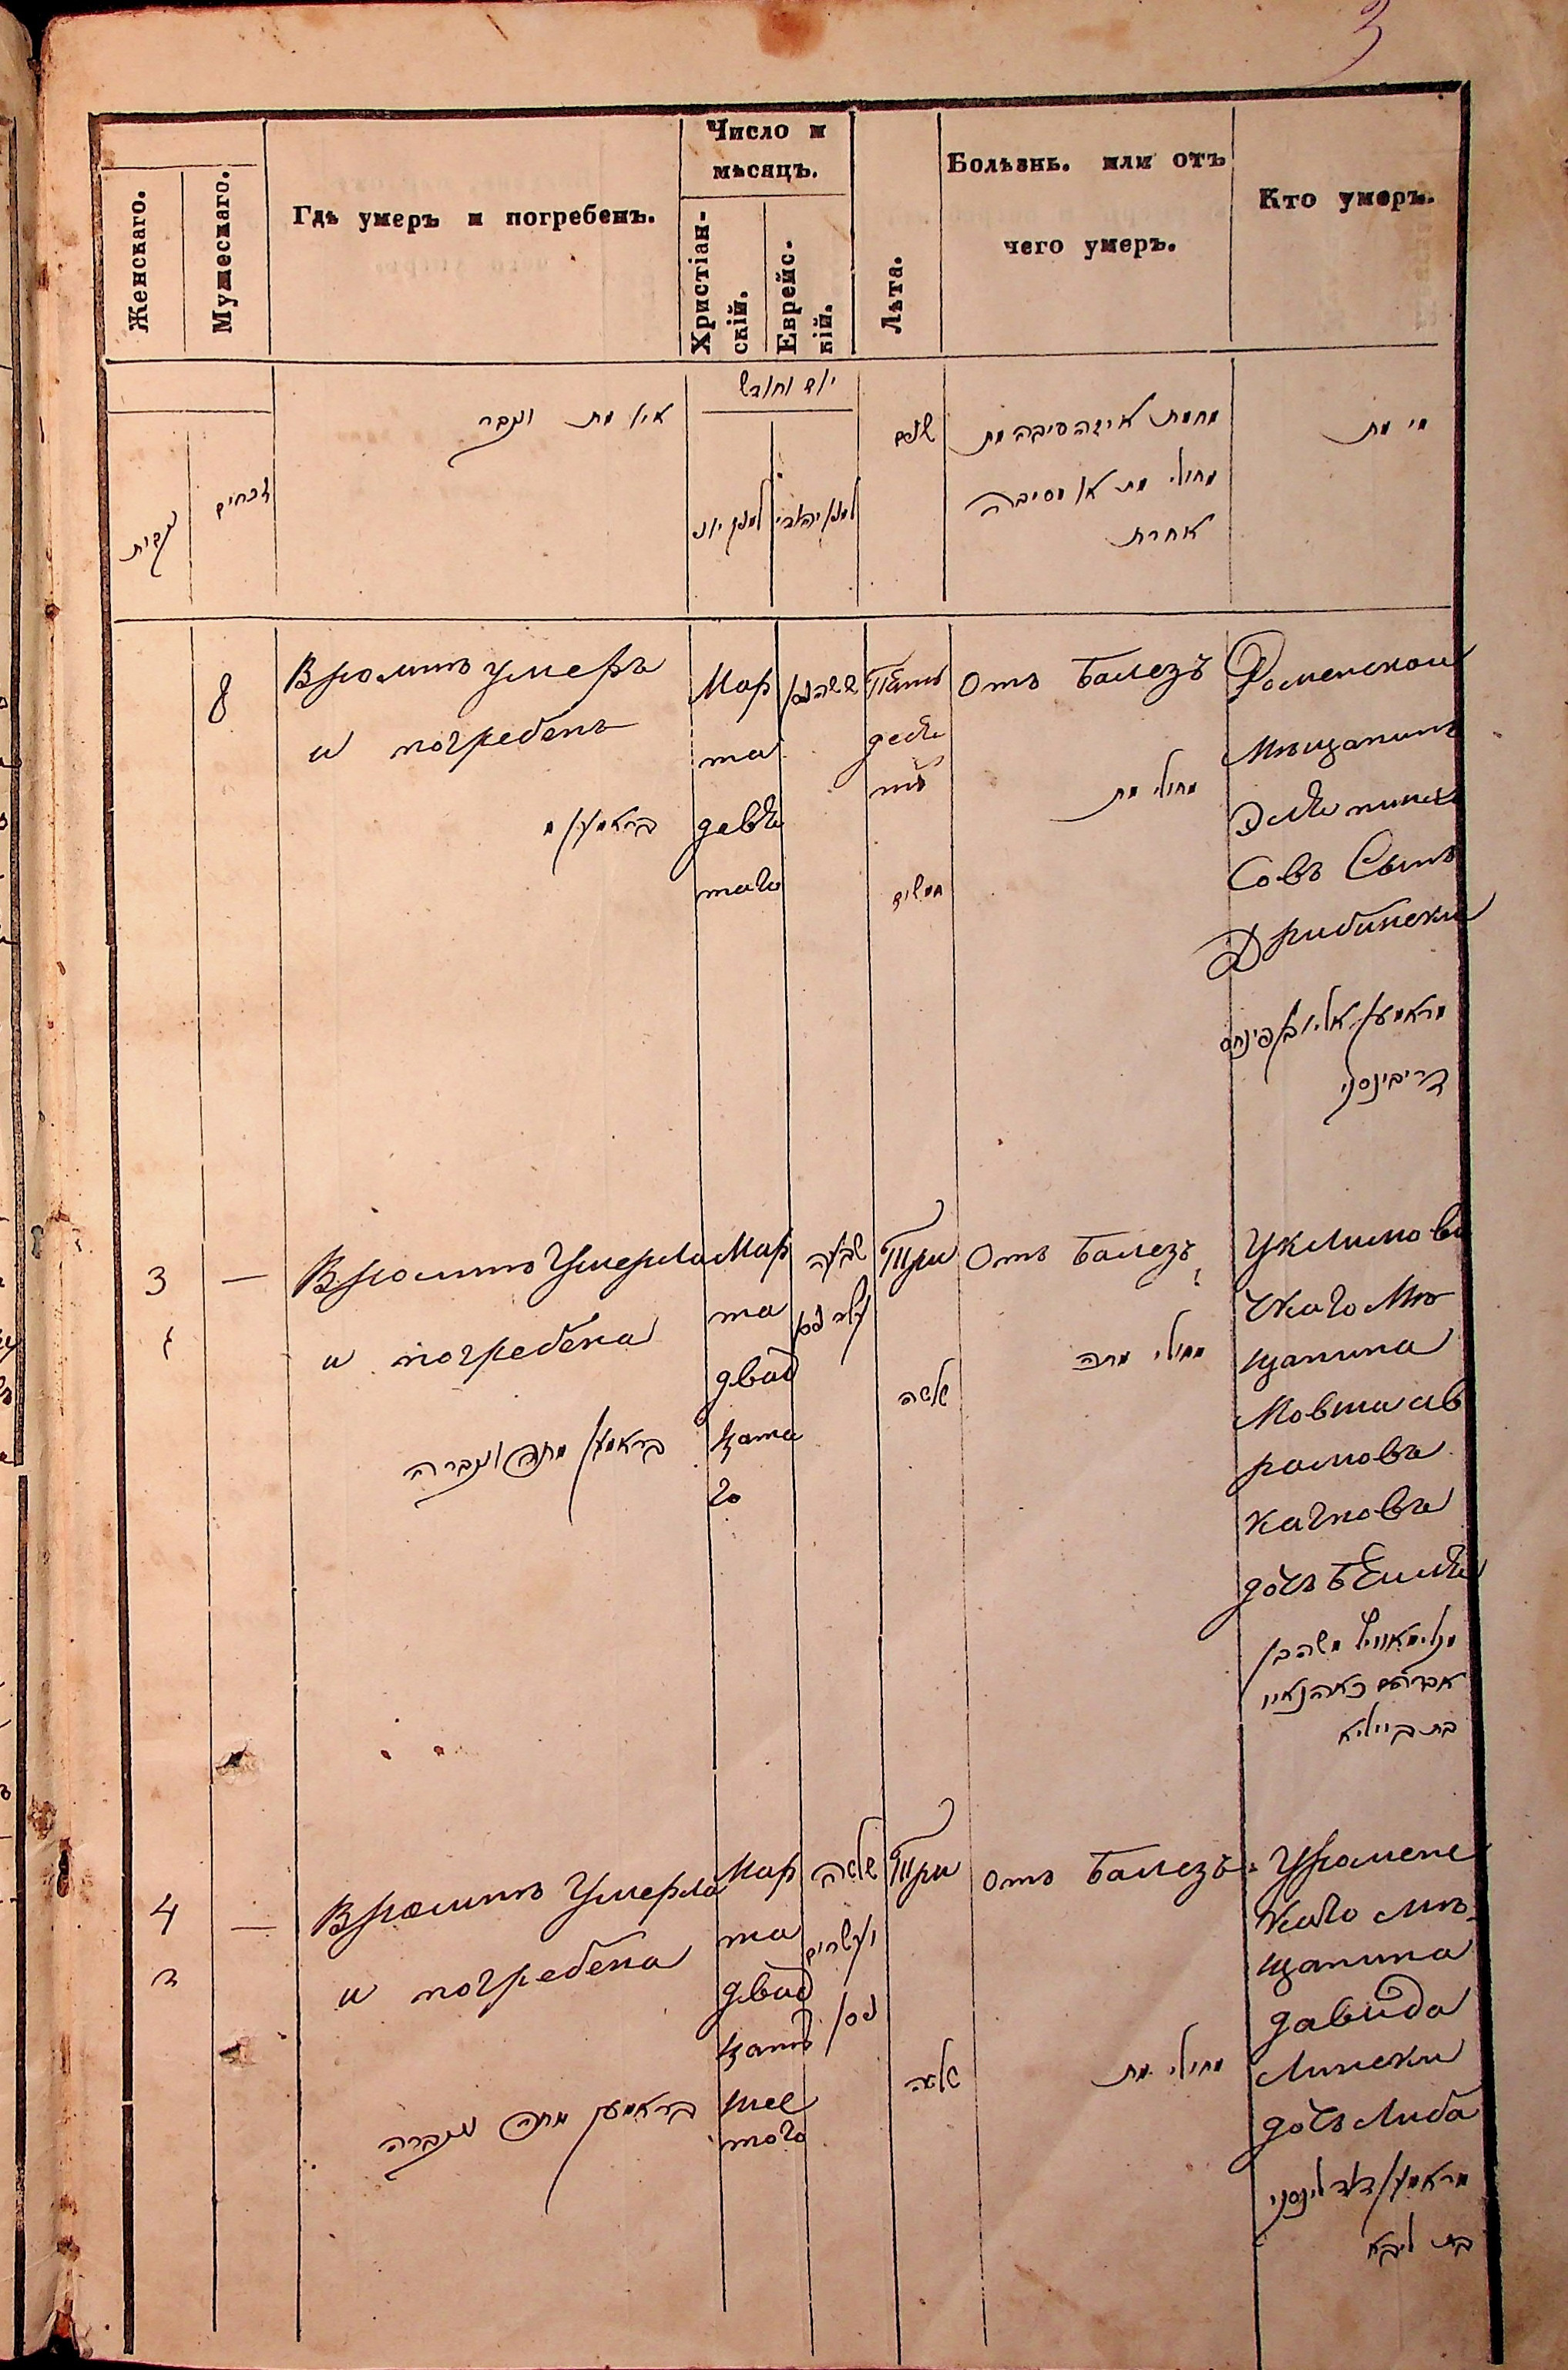 3
Женскаго.
Мужескаго.
Гдѣ умеръ и погребенъ.
Число и
мѣсяцъ.
Христіан-
скій.
Еврейс-
кій.
Лѣта.
Болѣзнь. или отъ
чего умеръ.
Кто умеръ.
נקבות
זכרים
איו מת ונקבר
יום וחודש
למנין יוני
למנין יהודי
שנים
מחמת איזה סיבה מת
מחולי מת או מסיבה
אחרת
מי מת
8
Вромнѣ умеръ
и погребенъ
בראמען
Мар
та
девя
таго
ששה ניסן
Пять
деся
тъ
חמשים
Отъ Балезъ
מחולי מת
Роменской
Мѣщанинъ
Эля пинхо
Совъ Сынъ
Дрибински
מראמען אלי׳ בן פינחס
דריבינסקי
3
1
—
Вромнѣ Умерла
и погребена
בראמען מתה ונקברה
Мар
та
двад
цата
го
שבעה
עשר ניסן
Три
שלשה
Отъ Балезъ
מחולי מתה
Уклимови
чкаго Мѣ
щанина
Мовша ав
рамовъ
качновъ
дочъ Беиля
משה בן
אברהם
בת ביילא
4
2
—
Вромнѣ Умерла
и погребена
בראמען מתה ונקברה
Мар
та
двад
цать
шес
того
שלשה
ועשרים
ניסן
Три
שלשה
отъ Балезъ
מחולי מת
Уромене
каго мѣ
щанина
давида
Лински
дочъ Либа
מראמען דוד לינסקי
בת ליבא